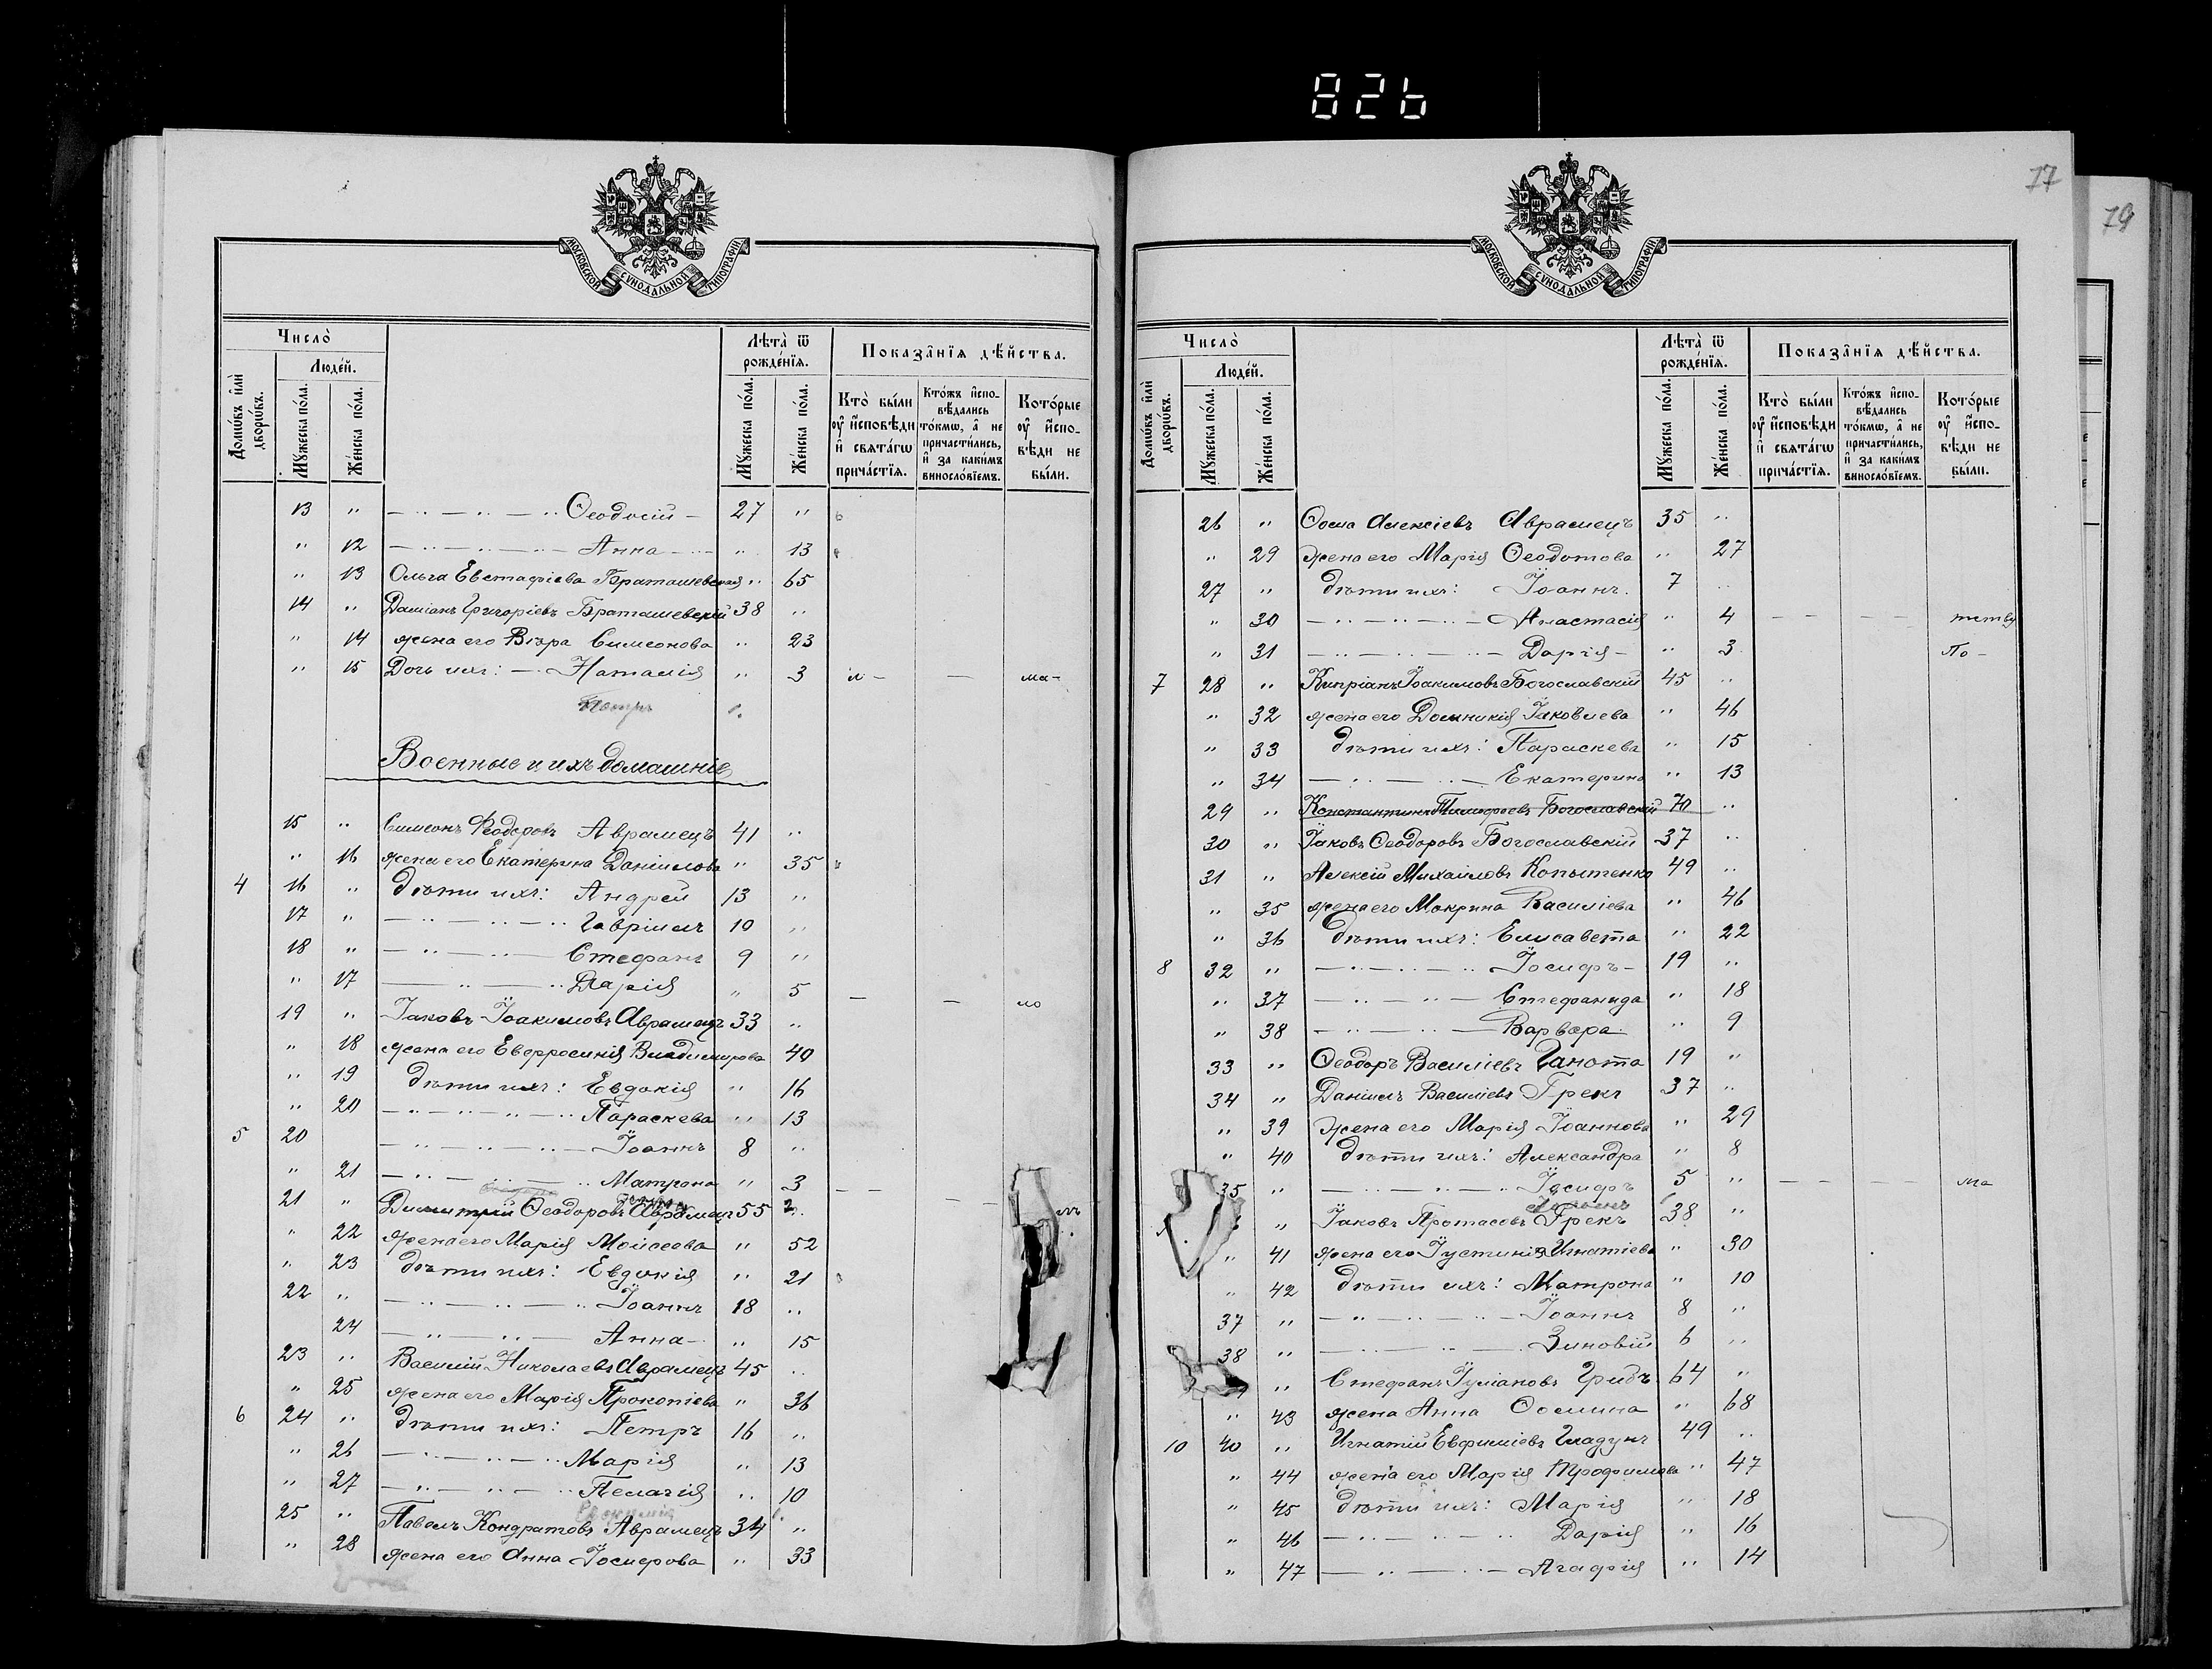 826
МОСКОВСКОЙ СУНОДАЛЬНОЙ ТИПОГРАФІИ
Число̀
Люде́й.
Домѡ́въ и҆лѝ дворѡ́въ.
Мꙋ́жеска по́ла.
Же́нска по́ла.
Лѣ́та ѿ рожде́нїѧ.
Мꙋ́жеска по́ла.
Же́нска по́ла.
Показа̑нїѧ дѣ́йства.
Кто̀ бы́ли оу҆ и҆́сповѣди и҆ свѧта́гѡ прича́стїѧ.
Кто́жъ и҆спо-вѣ́дались то́кмѡ, а҆ не причасти́лись, и҆ за каки́мъ винослóвїемъ.
Кото́рые оу҆ и҆́спо-вѣди не бы́ли.
13 " — " — " — " Ѳеодосій — 27 "
" 12 — " — " — " — Анна — " — " 13
" 13 Ольга Евстафіева Браташевская " 65
14 " Даміанъ Григоріевъ Браташевскій 38 "
" 14 жена его Вѣра Симеонова " 23
" 15 Дочь ихъ: — Наталія " 3 — ма-
Петръ
Военные и ихъ домашніе
15 " Симеонъ Ѳеодоровъ Аврамецъ 41 "
" 16 жена его Екатерина Даніилова " 35
4 16 " дѣти ихъ: Андрей 13 "
17 " — " — " — " Гавріилъ 10 "
18 " — " — " — Стефанъ 9 "
" 17 — " — " Дарія " 5 — — ло
19 " Іаковъ Іоакимовъ Аврамецъ 33 "
" 18 жена его Евфросинія Владимирова 40
" 19 дѣти ихъ: Евдокія " 16
" 20 — " — " — " — " Параскева " 13
5 20 — " — " — " — Іоаннъ 8 "
" 21 — " — " — " Матрона " 3 — —
21 " Димитрій Ѳеодоровъ Аврамецъ 55 лъ
" 22 жена его Марія Моисеова " 52
" 23 дѣти ихъ: Евдокія " 21
22 " — " — " — " Іоаннъ 18 "
24 — " — " — Анна — " 15
23 " Василій Николаевъ Аврамецъ 45 "
" 25 жена его Марія Прокопіева " 36
6 24 " дѣти ихъ: Петръ 16 "
" 26 — " — " — " Марія " 13
" 27 — " — " — " Пелагія " 10
25 " Павелъ Кондратовъ Аврамецъ 34 "
" 28 жена его Анна Іосифова " 33
77
79
МОСКОВСКОЙ СУНОДАЛЬНОЙ ТИПОГРАФІИ
Число̀
Люде́й.
Домѡ́въ и҆лѝ дворѡ́въ.
Мꙋ́жеска по́ла.
Же́нска по́ла.
Лѣ́та ѿ рожде́нїѧ.
Мꙋ́жеска по́ла.
Же́нска по́ла.
Показа̑нїѧ дѣ́йства.
Кто̀ бы́ли оу҆ и҆́сповѣди и҆ свѧта́гѡ прича́стїѧ.
Кто́жъ и҆спо-вѣ́дались то́кмѡ, а҆ не причасти́лись, и҆ за каки́мъ винослóвїемъ.
Кото́рые оу҆ и҆́спо-вѣди не бы́ли.
26 " Ѳома Алексіевъ Аврамецъ 35 "
" 29 жена его Марія Ѳеодотова " 27
27 " дѣти ихъ: Іоаннъ. 7 "
" 30 — " — " — " — Анастасія " 4 — — — — тству
" 31 — " — " — " — Дарія — " 3 По-
7 28 " Кипріанъ Іоакимовъ Богославскій 45 "
" 32 жена его Домникія Іаковлева " 46
" 33 дѣти ихъ: Параскева " 15
" 34 — " — " — Екатерина " 13
29 " Константинъ Тимофеевъ Богославскій 70 "
30 " Іаковъ Ѳеодоровъ Богославскій 37 "
31 " Алексій Михайловъ Копытенко 49 "
" 35 жена его Макрина Василіева " 46
" 36 дѣти ихъ: Елисавета " 22
8 32 " — " — " — " Іосифъ — 19 "
" 37 — " — " — Стефанида " 18
" 38 — " — " — Варвара " 9
33 " Ѳеодоръ Василіевъ Ганота 19 "
34 " Даніилъ Василіевъ Грекъ 37 "
" 39 жена его Марія Іоаннова " 29
" 40 дѣти ихъ: Александра " 8
35 " — " — " Іосифъ 5 " — — — — ма
" Іаковъ Протасовъ Грекъ 38 "
" 41 жена его Іустинія Игнатіева " 30
" 42 дѣти ихъ: Матрона " 10
37 " — " — " — " — Іоаннъ 8 "
38 " — " — " — Зиновій 6 "
" Стефанъ Іуліановъ Гридъ 64 "
" 43 жена Анна Ѳомина " 68
10 40 " Игнатій Евфиміевъ Гладунъ 49 "
" 44 жена его Марія Трофимова " 47
" 45 дѣти ихъ: Марія " 18
" 46 — " — " — " Дарія " 16
" 47 — " — " — Агафія " 14